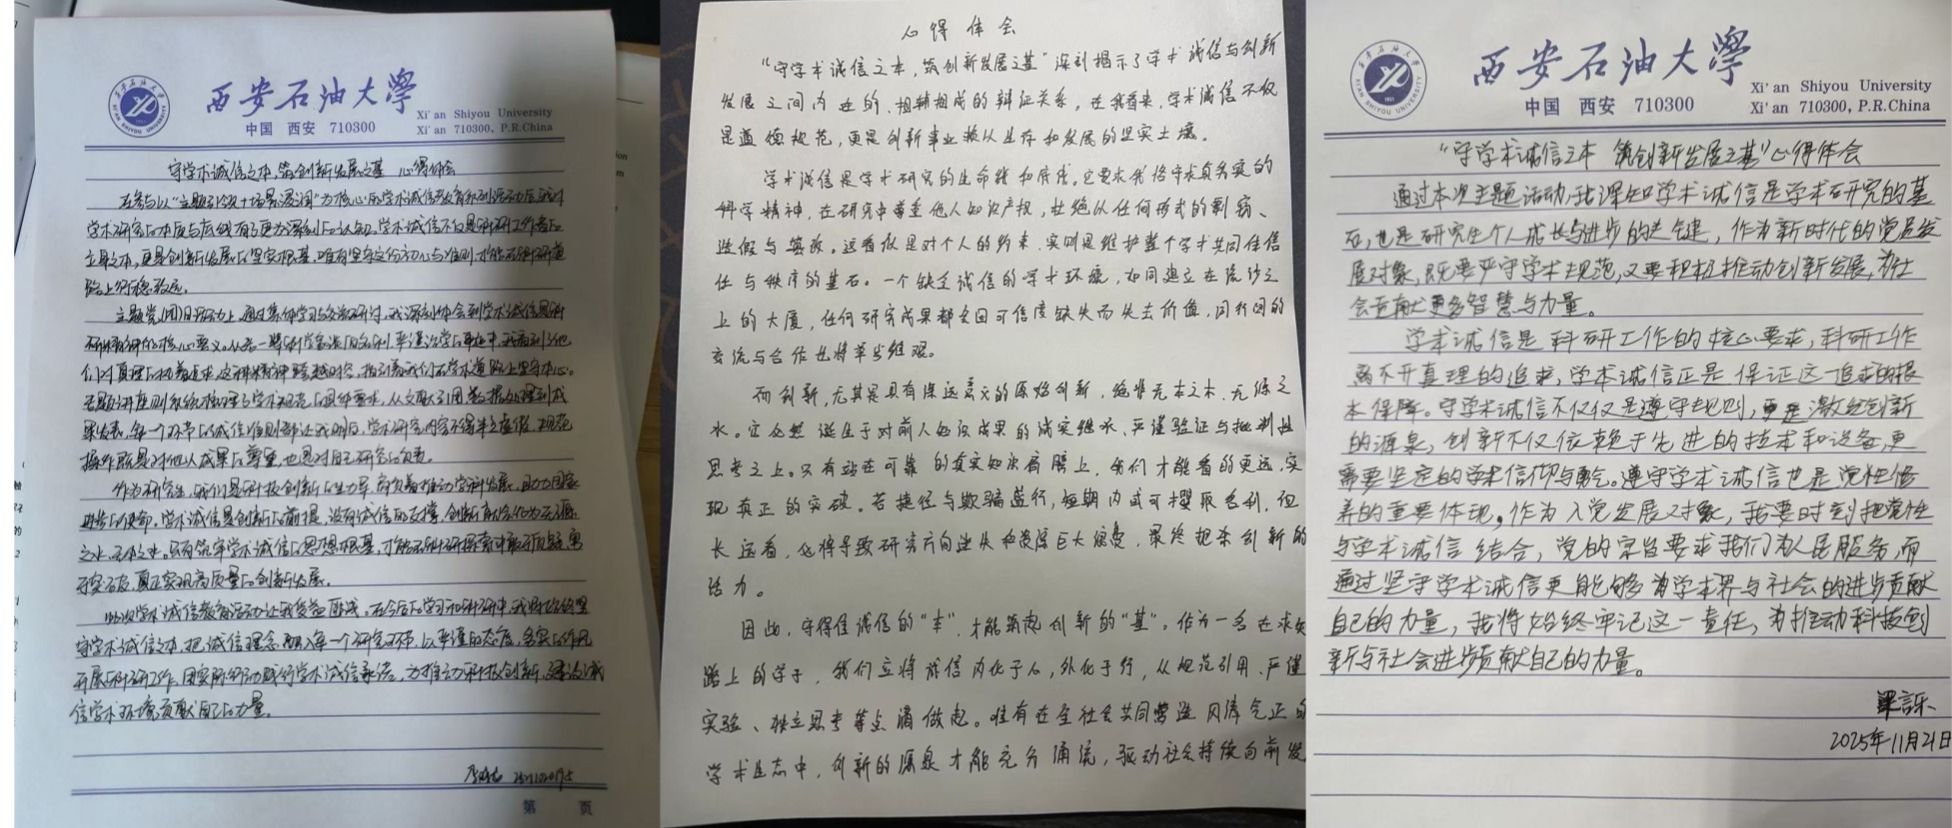 西安石油大学
中国 西安 710300
Xi'an Shiyou University
Xi'an 710300, P.R.China
守学术诚信之本,筑创新发展之基 心得体会
在参与以"主题引领+场景浸润"为核心的学术诚信教育系列活动后,我对
学术研究的本质与底线有了更为深刻的认知。学术诚信不仅是科研工作者的
立身之本,更是创新发展的坚实根基,唯有坚守这份初心与准则,才能在科研道
路上行稳致远。
主题党(团)日活动上,通过集体学习与交流研讨,我深刻体会到学术诚信是科
研精神的核心要义。从老一辈科学家淡泊名利、严谨治学的事迹中,我看到了他
们对真理的执着追求,这种精神跨越时空,指引着我们在学术道路上坚守本心。
专题讲座则系统梳理了学术规范的具体要求,从文献引用、数据处理到成
果发表,每一个环节的诚信准则都让我明白,学术研究内容不得半点虚假,规范
操作既是对他人成果的尊重,也是对自己研究的负责。
作为研究生,我们是科技创新的生力军,肩负着推动学科发展、助力国家
进步的使命。学术诚信是创新的前提,没有诚信的支撑,创新就会化为无源
之水、无本之木。只有筑牢学术诚信的思想根基,才能在科研探索中敢于质疑、勇
于突破,真正实现高质量的创新发展。
此次学术诚信教育活动让我受益匪浅。在今后的学习和科研中,我将始终坚
守学术诚信之本,把诚信理念融入每一个研究环节,以严谨的态度、务实的作风
开展科研工作,用实际行动践行学术诚信承诺,为推动科技创新、建设诚
信学术环境贡献自己的力量。
第 页
心得体会
"守学术诚信之本,筑创新发展之基"深刻揭示了学术诚信与创新
发展之间内在的、相辅相成的辩证关系。在我看来,学术诚信不仅
是道德规范,更是创新事业赖以生存和发展的坚实土壤。
学术诚信是学术研究的生命线和底线。它要求我恪守求真务实的
科学精神,在研究中尊重他人知识产权,杜绝以任何形式的剽窃、
造假与篡改。这看似是对个人的约束,实则是维护整个学术共同体信
任与秩序的基石。一个缺乏诚信的学术环境,如同建立在流沙之
上的大厦,任何研究成果都会因可信度缺失而失去价值,同行间的
交流与合作也将举步维艰。
而创新,尤其是具有深远意义的原始创新,绝非无本之木、无源之
水。它必然诞生于对前人知识成果的诚实继承、严谨验证与批判性
思考之上。只有站在可靠的真实知识肩膀上,我们才能看的更远,实
现真正的突破。若捷径与欺骗盛行,短期内或可攫取名利,但
长远看,必将导致研究方向迷失和资源巨大浪费,最终扼杀创新的
活力。
因此,守得住诚信的"本",才能筑起创新的"基"。作为一名在求知
路上的学子,我们应将诚信内化于心,外化于行,从规范引用、严谨
实验、独立思考等点滴做起。唯有在全社会共同营造风清气正的
学术生态中,创新的源泉才能充分涌流,驱动社会持续向前发
西安石油大学
中国 西安 710300
Xi'an Shiyou University
Xi'an 710300, P.R.China
"守学术诚信之本 筑创新发展之基"心得体会
通过本次主题活动,我深知学术诚信是学术研究的基
石,也是研究生个人成长与进步的关键,作为新时代的党员发
展对象,既要严守学术规范,又要积极推动创新发展,为社
会贡献更多智慧与力量。
学术诚信是科研工作的核心要求,科研工作
离不开真理的追求,学术诚信正是保证这一追求的根
本保障。守学术诚信不仅仅是遵守规则,更是激发创新
的源泉,创新不仅依赖于先进的技术和设备,更
需要坚定的学术信仰与勇气。遵守学术诚信也是党性修
养的重要体现。作为入党发展对象,我要时刻把党性
与学术诚信结合,党的宗旨要求我们为人民服务,而
通过坚守学术诚信更能够为学术界与社会的进步贡献
自己的力量,我将始终牢记这一责任,为推动科技创
新与社会进步贡献自己的力量。
2025年11月21日